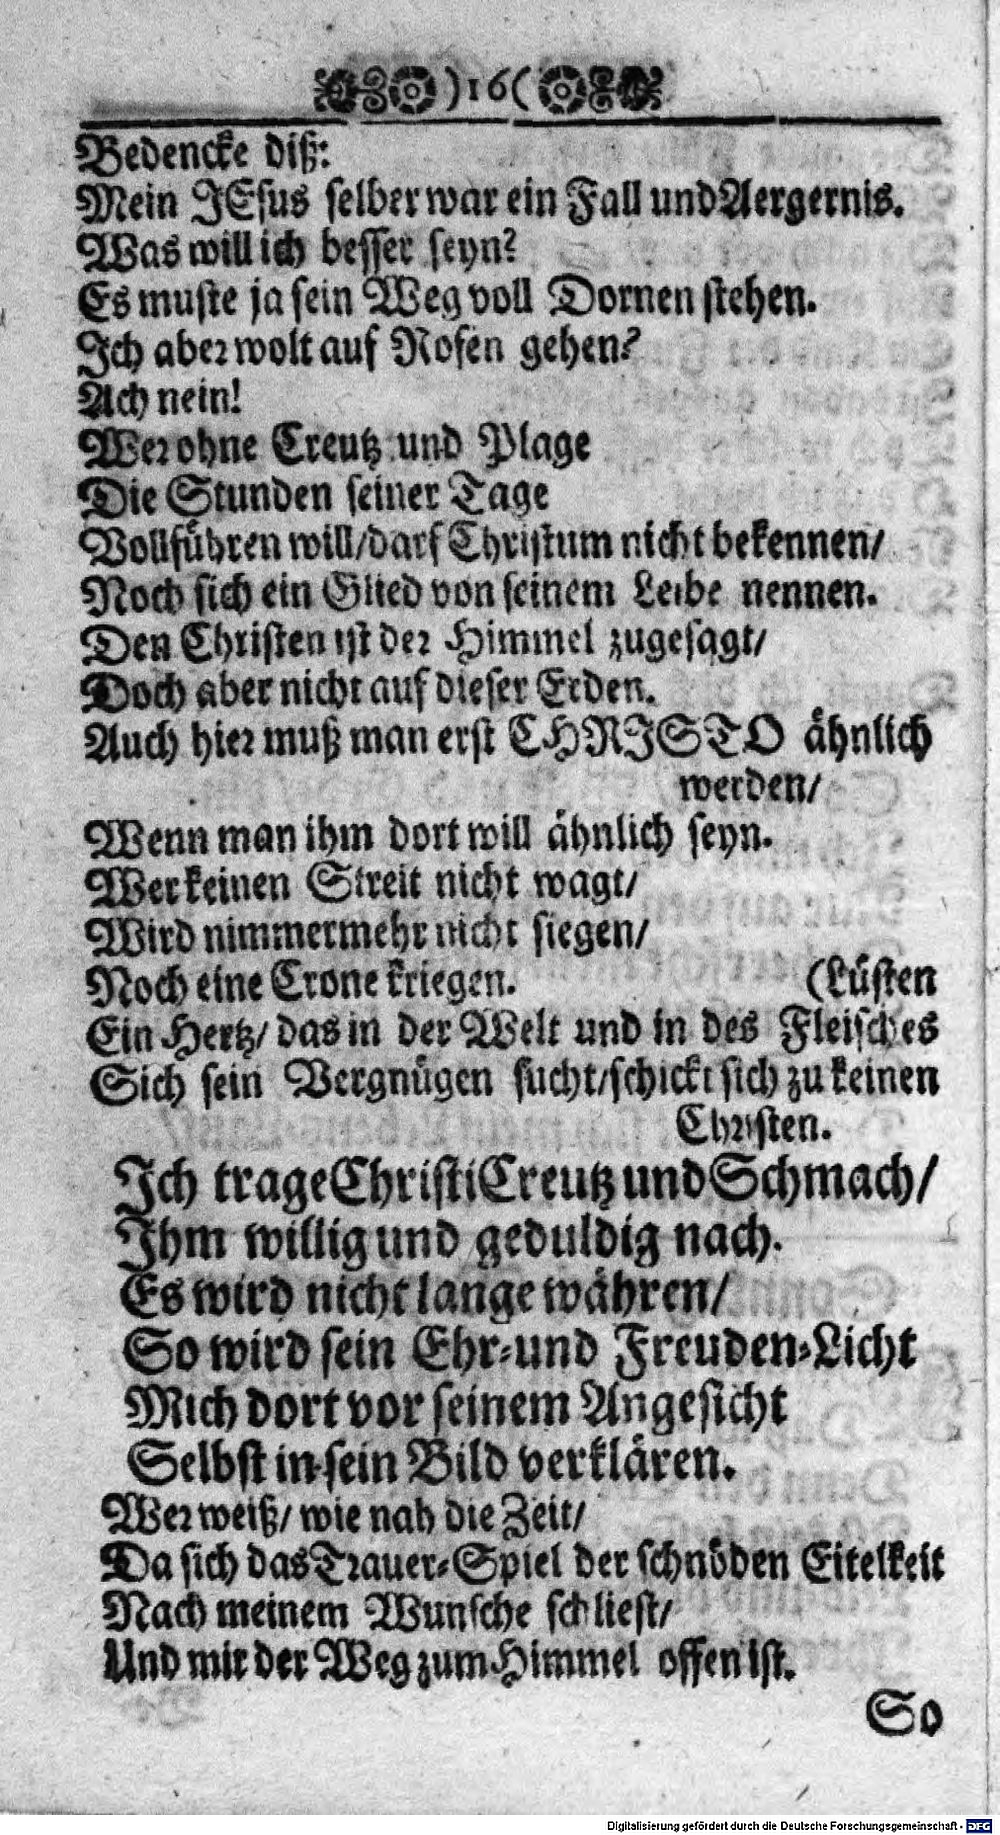 )16(
Bedencke diß:
Mein JEsus selber war ein Fall und Aergernis.
Was will ich besser seyn?
Es muste ja sein Weg voll Dornen stehen.
Ich aber wolt auf Rosen gehen?
Ach nein!
Wer ohne Creutz und Plage
Die Stunden seiner Tage
Vollführen will/darf Christum nicht bekennen/
Noch sich ein Glied von seinem Leibe nennen.
Den Christen ist der Himmel zugesagt/
Doch aber nicht auf dieser Erden.
Auch hier muß man erst CHRISTO ähnlich
werden/
Wenn man ihm dort will ähnlich seyn.
Wer keinen Streit nicht wagt/
Wird nimmermehr nicht siegen/
Noch eine Crone kriegen. (Lüsten
Ein Hertz/ das in der Welt und in des Fleisches
Sich sein Vergnügen sucht/schickt sich zu keinen
Christen.
Ich trage Christi Creutz und Schmach/
Ihm willig und geduldig nach.
Es wird nicht lange währen/
So wird sein Ehr-und Freuden-Licht
Mich dort vor seinem Angesicht
Selbst in sein Bild verklären.
Wer weiß/ wie nah die Zeit/
Da sich das Trauer-Spiel der schnöden Eitelkeit
Nach meinem Wunsche schliest/
Und mir der Weg zum Himmel offen ist.
So
Digitalisierung gefördert durch die Deutsche Forschungsgemeinschaft - DFG